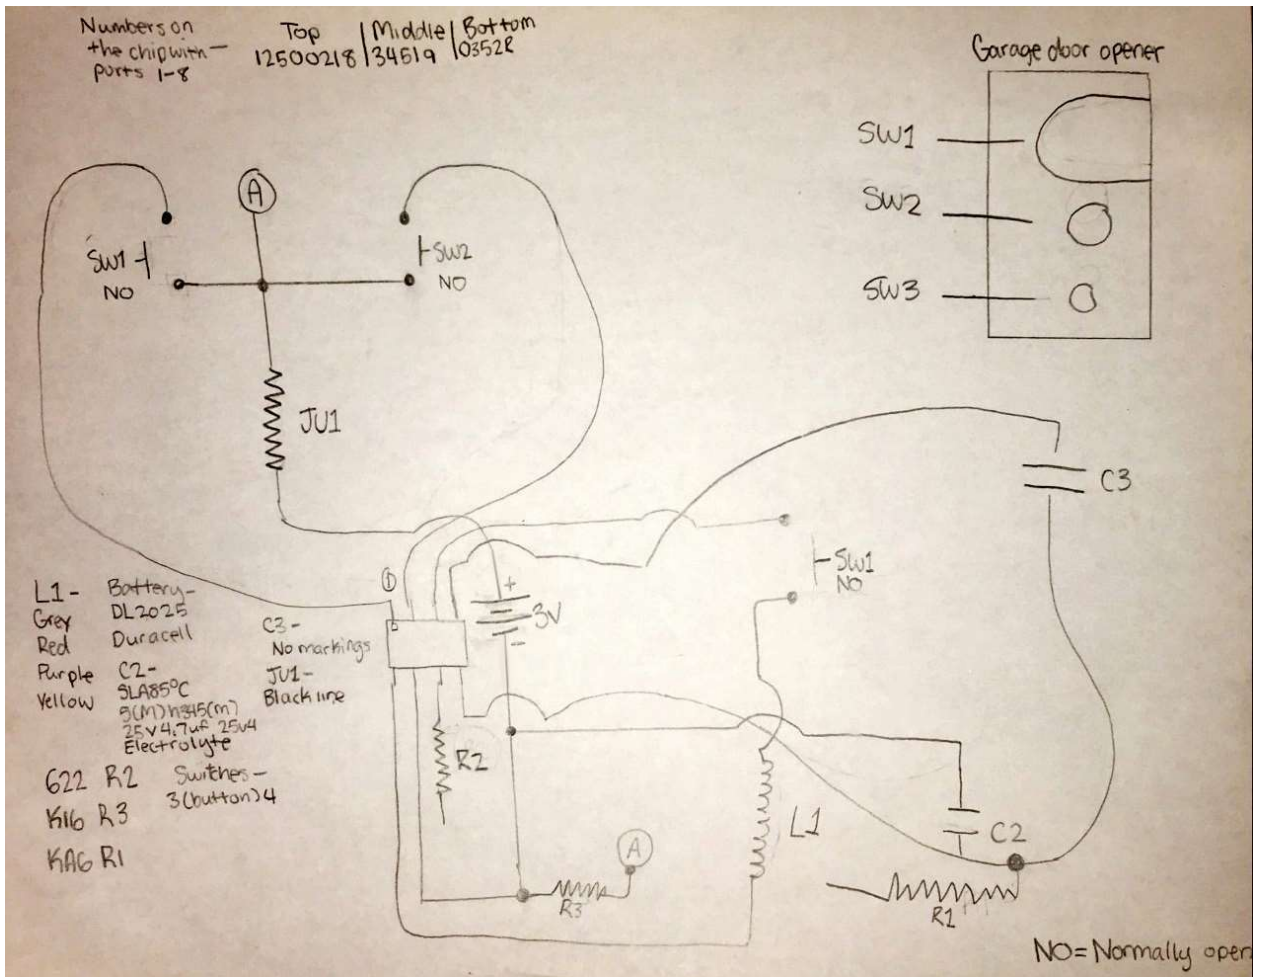 Numbers on
the chip with —
ports 1-8
Top | Middle | Bottom
12500218 | 34519 | 0352R
Garage door opener
SW1
SW2
SW3
A
SW1
NO
SW2
NO
JU1
C3
SW1
NO
1
+
3V
-
L1 - 
Grey
Red
Purple
Yellow
Battery -
DL2025
Duracell
C2 -
SLA85°C
25V 4.7uf 25v4
Electrolyte
C3 -
No markings
JU1 -
Black line
622 R2
K16 R3
KA6 R1
Switches -
3(button)4
R2
R3
A
L1
C2
R1
NO = Normally open